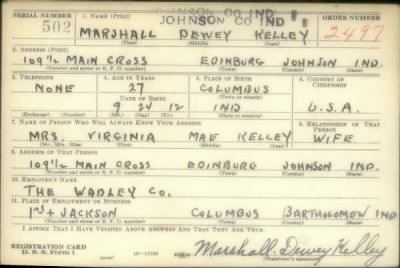 JOHNSON CO IND
SERIAL NUMBER 1. NAME (Print) JOHNSON CO IND ORDER NUMBER
502 MARSHALL DEWEY KELLEY 2497
(First) (Middle) (Last)
2. ADDRESS (Print)
109 1/2 MAIN CROSS EDINBURG JOHNSON IND.
(Number and street or R. F. D. number) (Town) (County) (State)
3. TELEPHONE 4. AGE IN YEARS 5. PLACE OF BIRTH 6. COUNTRY OF CITIZENSHIP
NONE 27 COLUMBUS
DATE OF BIRTH (Town or county)
9 24 12 IND U.S.A.
(Exchange) (Number) (Mo.) (Day) (Yr.) (State or country)
7. NAME OF PERSON WHO WILL ALWAYS KNOW YOUR ADDRESS 8. RELATIONSHIP OF THAT PERSON
MRS. VIRGINIA MAE KELLEY WIFE
(Mr., Mrs., Miss) (First) (Middle) (Last)
9. ADDRESS OF THAT PERSON
109 1/2 MAIN CROSS EDINBURG JOHNSON IND.
(Number and street or R. F. D. number) (Town) (County) (State)
10. EMPLOYER'S NAME
THE WADLEY CO.
11. PLACE OF EMPLOYMENT OR BUSINESS
1st + JACKSON COLUMBUS BARTHOLOMEW IND
(Number and street or R. F. D. number) (Town) (County) (State)
I AFFIRM THAT I HAVE VERIFIED ABOVE ANSWERS AND THAT THEY ARE TRUE.
REGISTRATION CARD
D. S. S. Form 1 Marshall Dewey Kelley
(Registrant's signature)